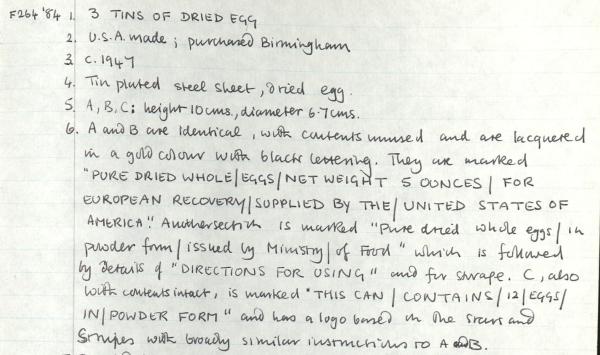 F264 '84 1. 3 TINS OF DRIED EGG
2. U.S.A. made ; purchased Birmingham
3. c.1947
4. Tin plated steel sheet, dried egg.
5. A, B, C: height 10cms., diameter 6.7cms.
6. A and B are identical, with contents unused and are lacquered
in a gold colour with black lettering. They are marked
"PURE DRIED WHOLE/EGGS/NET WEIGHT 5 OUNCES/ FOR
EUROPEAN RECOVERY/SUPPLIED BY THE/UNITED STATES OF
AMERICA". Another section is marked "Pure dried whole eggs/ in
powder form/ issued by Ministry/ of Food" which is followed
by details of "DIRECTIONS FOR USING" and for storage. C, also
with contents intact, is marked "THIS CAN/ CONTAINS/12/EGGS/
IN/POWDER FORM" and has a logo based on the stars and
stripes with broadly similar instructions to A and B.